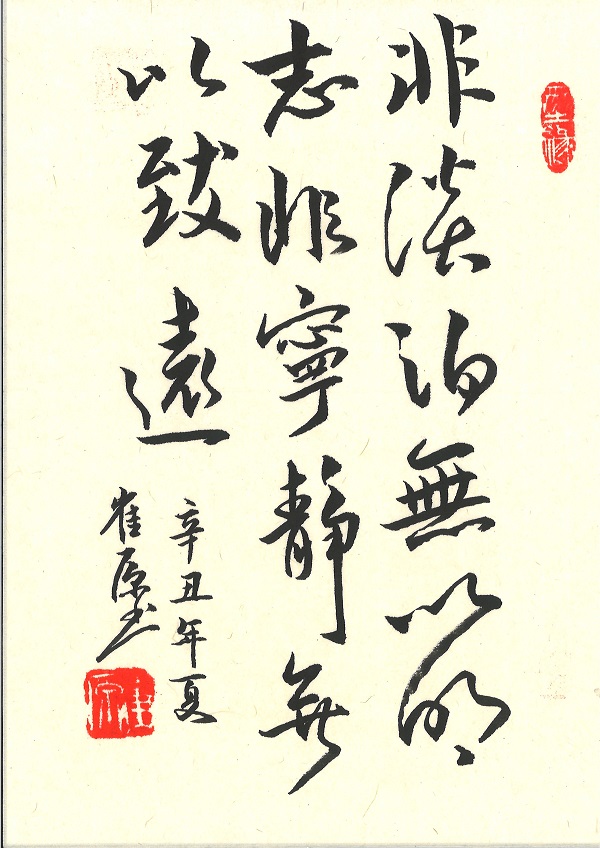 非淡泊無以明
志非寧靜無
以致遠
辛丑年夏
崔原书
崔原